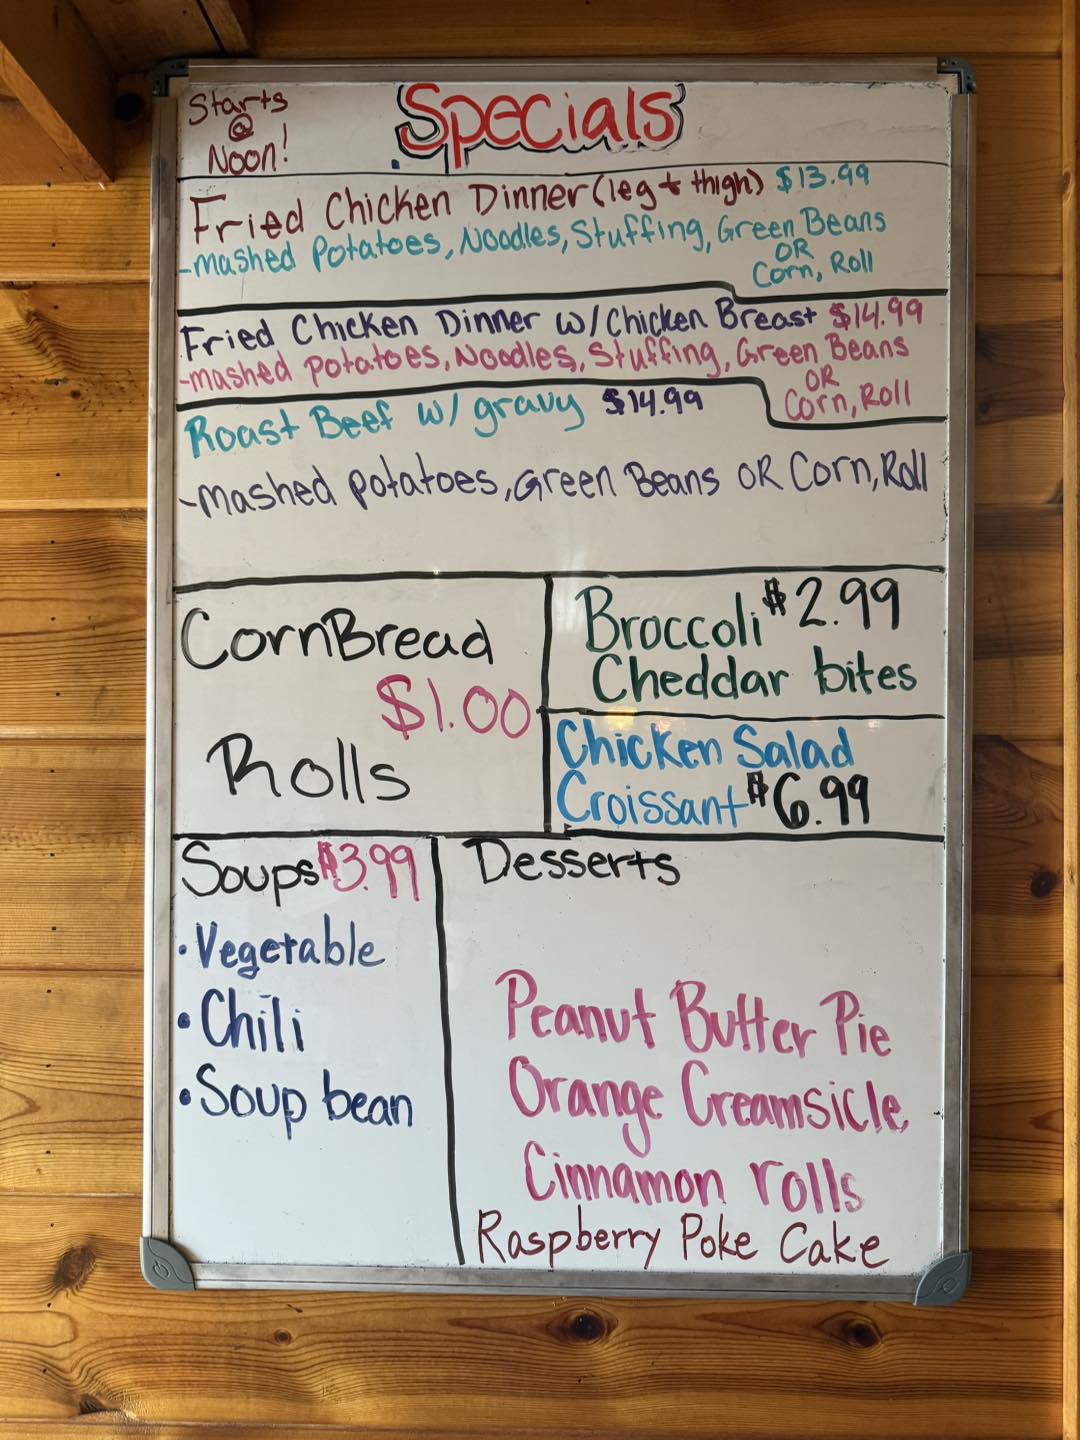 Starts
@
Noon!
Specials
Fried Chicken Dinner (leg + thigh) $13.99
-mashed Potatoes, Noodles, Stuffing, Green Beans
OR
Corn, Roll
Fried Chicken Dinner w/Chicken Breast $14.99
-mashed potatoes, Noodles, Stuffing, Green Beans
OR
Corn, Roll
Roast Beef w/ gravy $14.99
-mashed potatoes, Green Beans OR Corn, Roll
CornBread
$1.00
Rolls
Broccoli $2.99
Cheddar bites
Chicken Salad
Croissant $6.99
Soups $3.99
• Vegetable
• Chili
• Soup bean
Desserts
Peanut Butter Pie
Orange Creamsicle
Cinnamon rolls
Raspberry Poke Cake